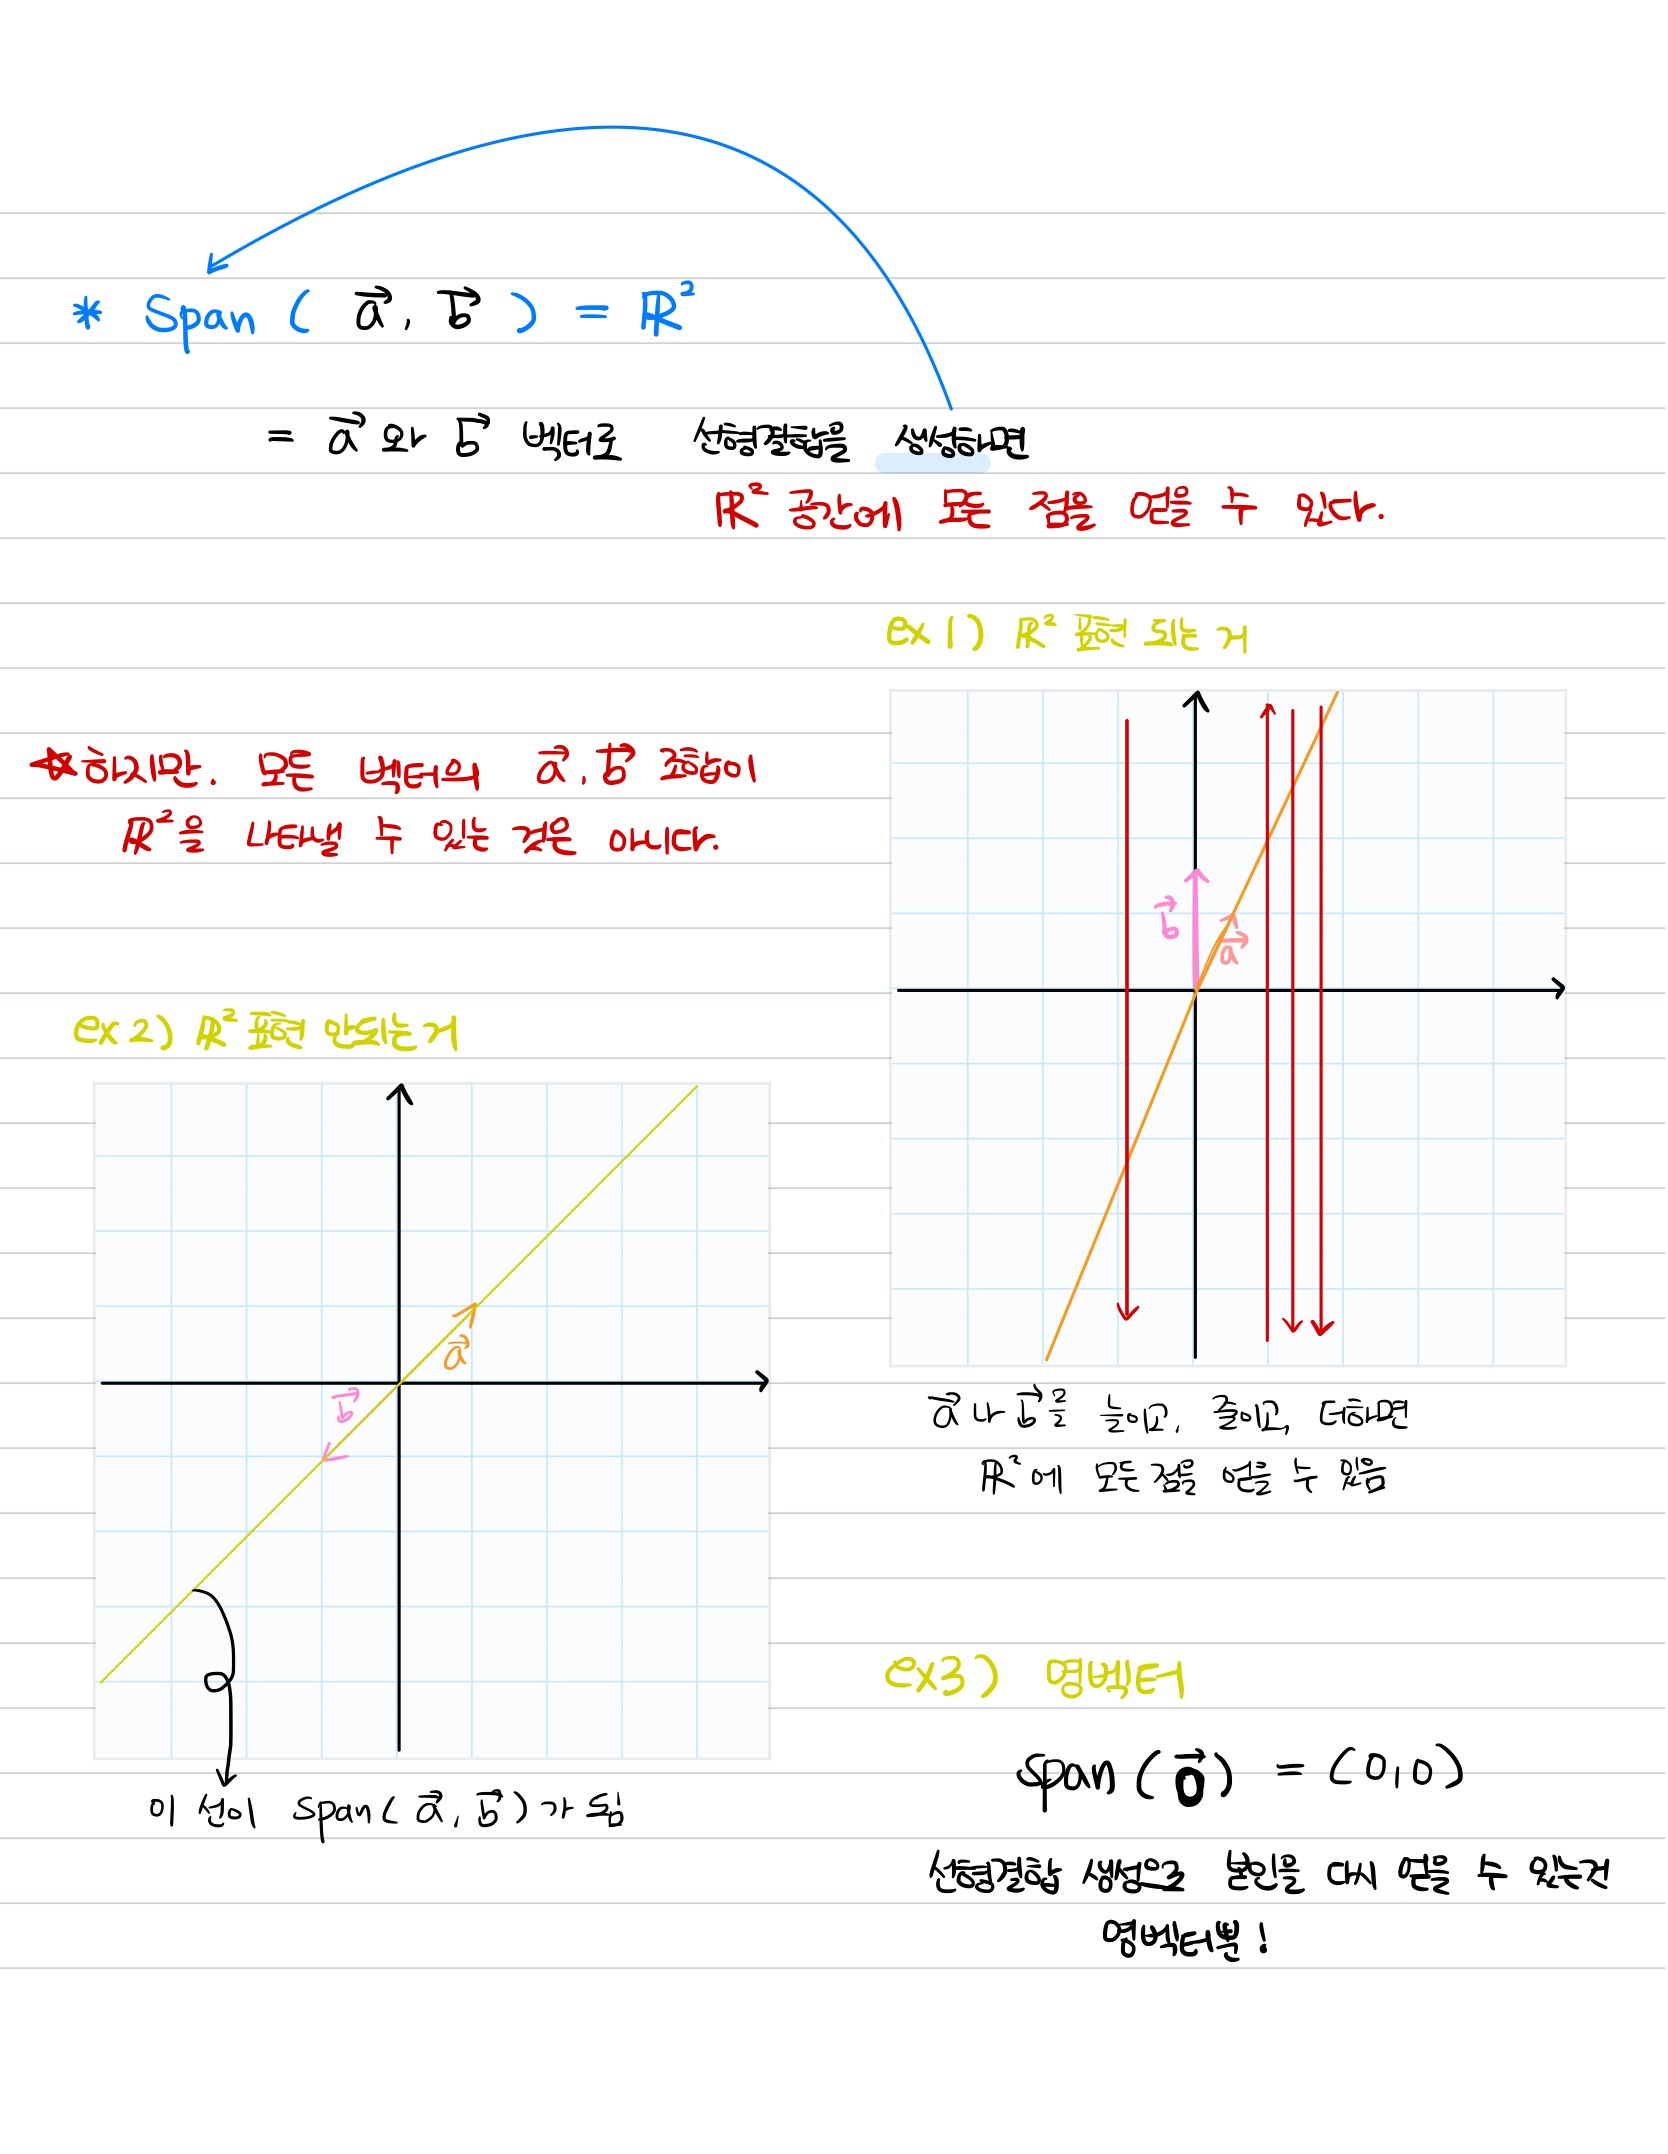 * Span ( a⃗, b⃗ ) = ℝ²
= a⃗ 와 b⃗ 벡터로 선형결합을 생성하면
ℝ² 공간에 모든 점을 얻을 수 있다.
ex 1) ℝ² 표현 되는 거
☆하지만. 모든 벡터의 a⃗, b⃗ 조합이
ℝ²을 나타낼 수 있는 것은 아니다.
b⃗
a⃗
a⃗ 나 b⃗를 늘이고, 줄이고, 더하면
ℝ²에 모든 점을 얻을 수 있음
ex 2) ℝ² 표현 안되는거
a⃗
b⃗
이 선이 span( a⃗, b⃗ )가 됨
ex3) 영벡터
span ( 0⃗ ) = (0,0)
선형결합 생성으로 본인을 다시 얻을 수 있는건
영벡터뿐!